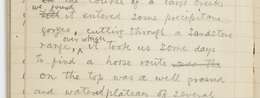 the courses of a large creek
we found it entered some precipitous
gorges, cutting through a sandstone
range, over which it took us some days
to find a horse route
on the top was a well grassed
and watered plateau of several